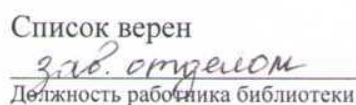 Список верен
зав. отделом
Должность работника библиотеки